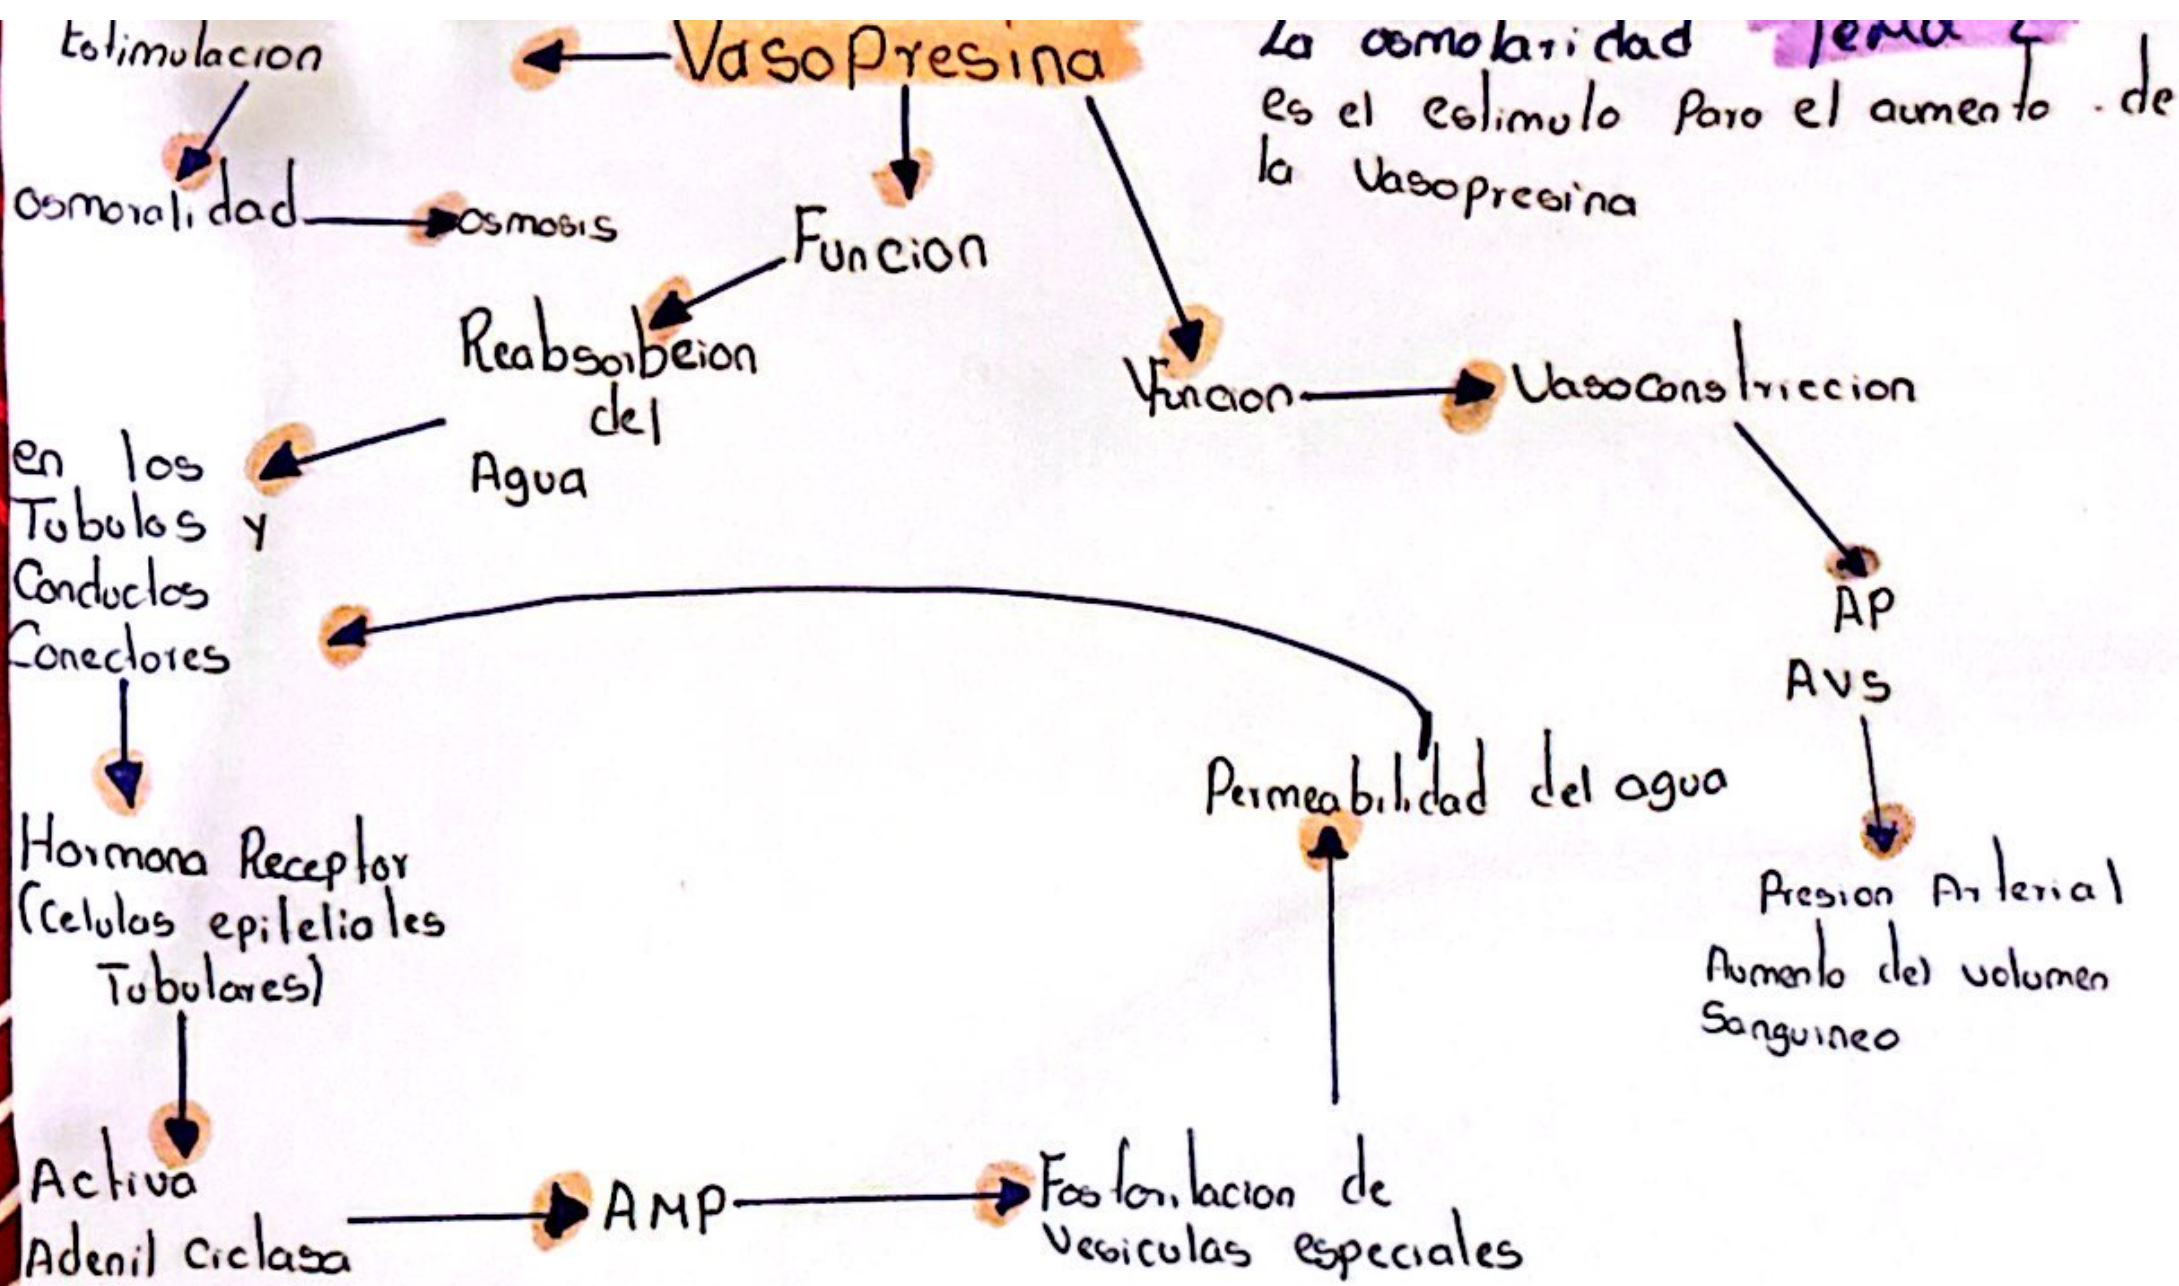 Estimulacion
Vasopresina
La osmolaridad
Tema 2
es el estimulo para el aumento de
la Vasopresina
osmoralidad
osmosis
Funcion
Reabsorbcion
del
Agua
Funcion
Vasoconstriccion
en los
Tubulos y
Conductos
Conectores
AP
AVS
Permeabilidad del agua
Presion Arterial
Aumento del volumen
Sanguineo
Hormona Receptor
(Celulas epiteliales
Tubulares)
Activa
Adenil Ciclasa
AMP
Fosforilacion de
Vesiculas especiales